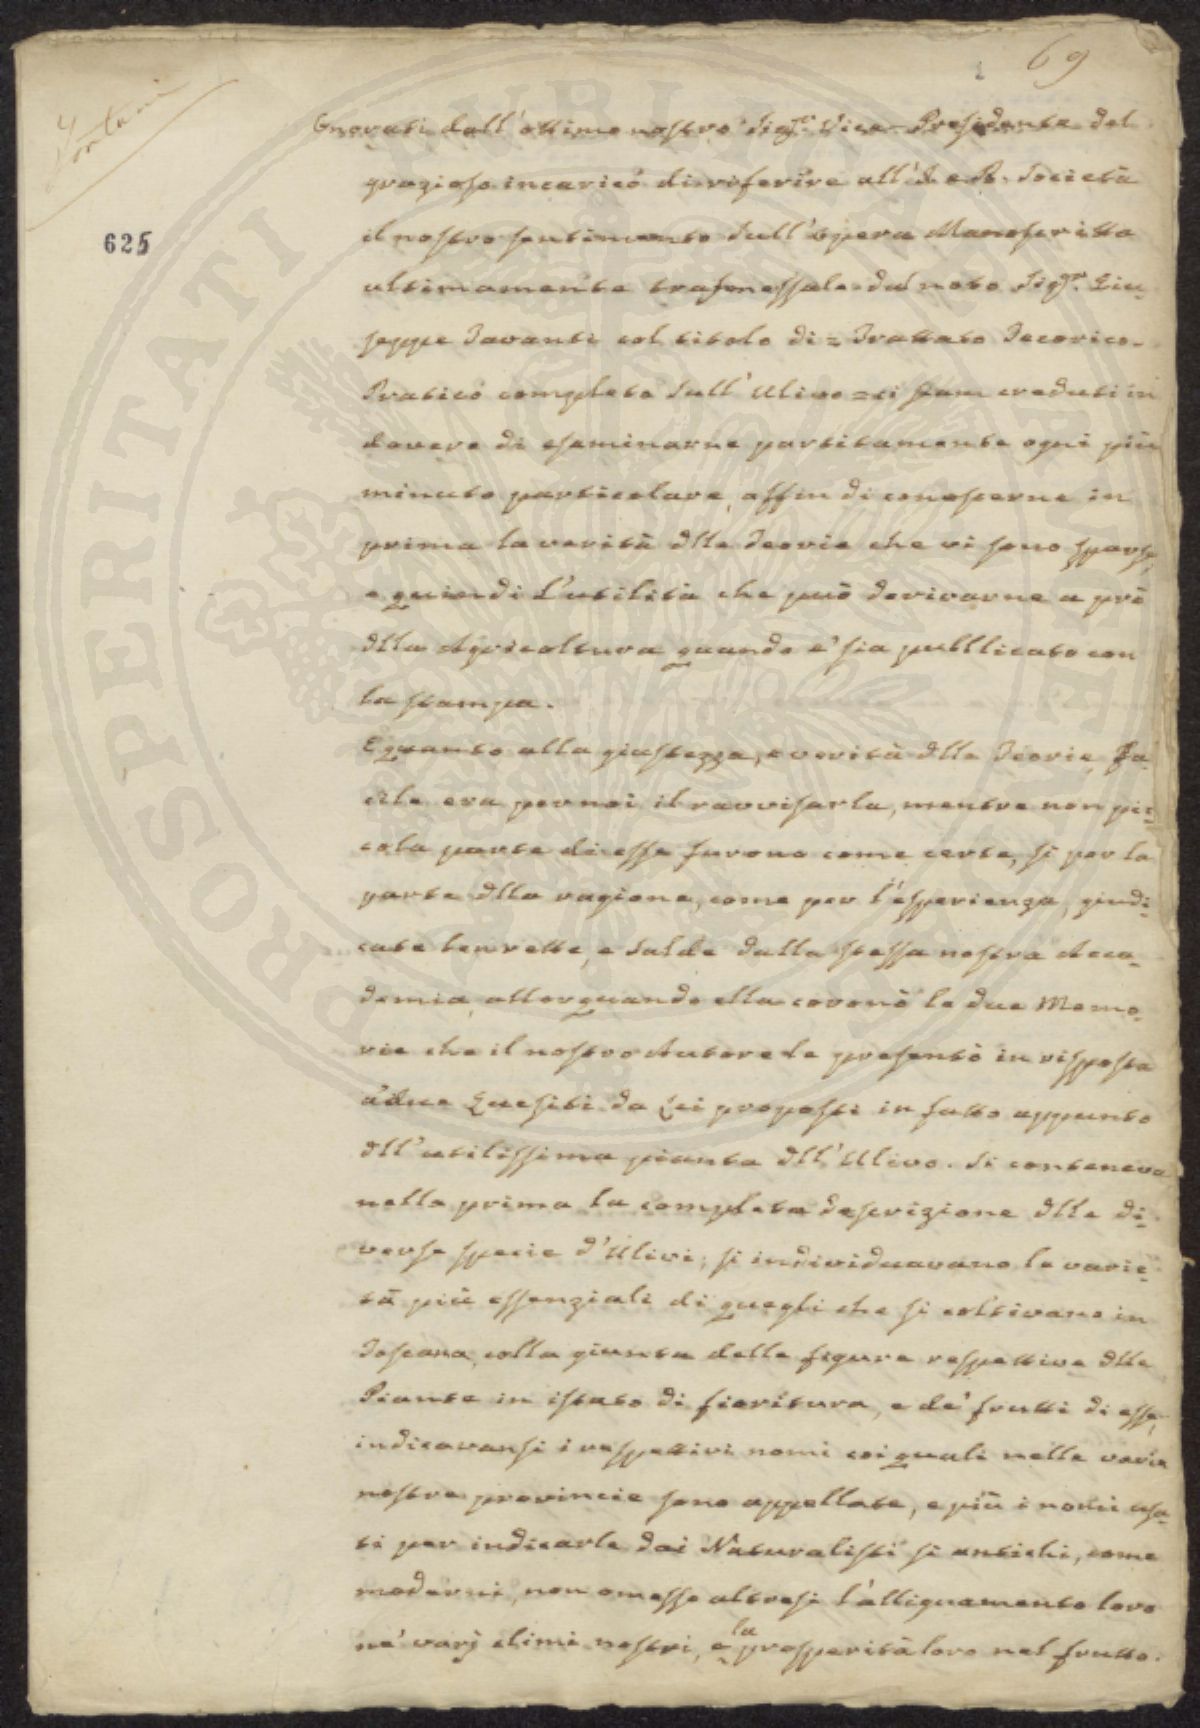 69
Fontani
625
Onorati dall'ottimo nostro Sigr. Vice-Presidente del
grazioso incarico di riferire all'I. e R. Società
il nostro sentimento sull'opera Manoscritta
ultimamente trasmessale dal noto Sigr. Giu-
seppe Tavanti col titolo di = Trattato Teorico-
Pratico completo sull'Ulivo = ci siam creduti in
dovere di esaminarne partitamente ogni più
minuto particolare, affin di conoscerne in
prima la verità dlle Teorie che vi sono sparse,
e quindi l'utilità che può derivarne a prò
dlla Agricoltura quando e' sia pubblicato con
la stampa.
E quanto alla giustezza, e verità dlle Teorie, fa-
cile era per noi il ravvisarla, mentre non pic-
cola parte di esse furono come certe, sì per la
parte dlla ragione, come per l'esperienza, giudi-
cate ben rette, e salde dalla stessa nostra Acca-
demia, allorquando ella coronò le due Memo-
rie che il nostro Autore le presentò in risposta
a due Quesiti da Lei proposti in fatto appunto
dll'utilissima pianta dll'Ulivo. Si conteneva
nella prima la completa descrizione dlle di-
verse specie d'Ulivi; si individuavano le varie-
tà più essenziali di quegli che si coltivano in
Toscana, colla giunta delle figure respettive dlle
Piante in istato di fioritura, e de' frutti di esse,
indicavansi i respettivi nomi coi quali nelle varie
nostre provincie sono appellate, e più i nomi usa-
ti per indicarle dai Naturalisti sì antichi, come
moderni, non omesso altresì l'alliguamento loro
ne' varj climi nostri, e la prosperità loro nel frutto.
PROSPERITATI PUBLICAE AUGENDAE